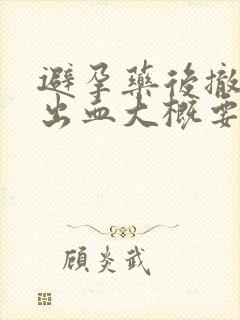 避孕藥後撤
出血大概要
顧炎武